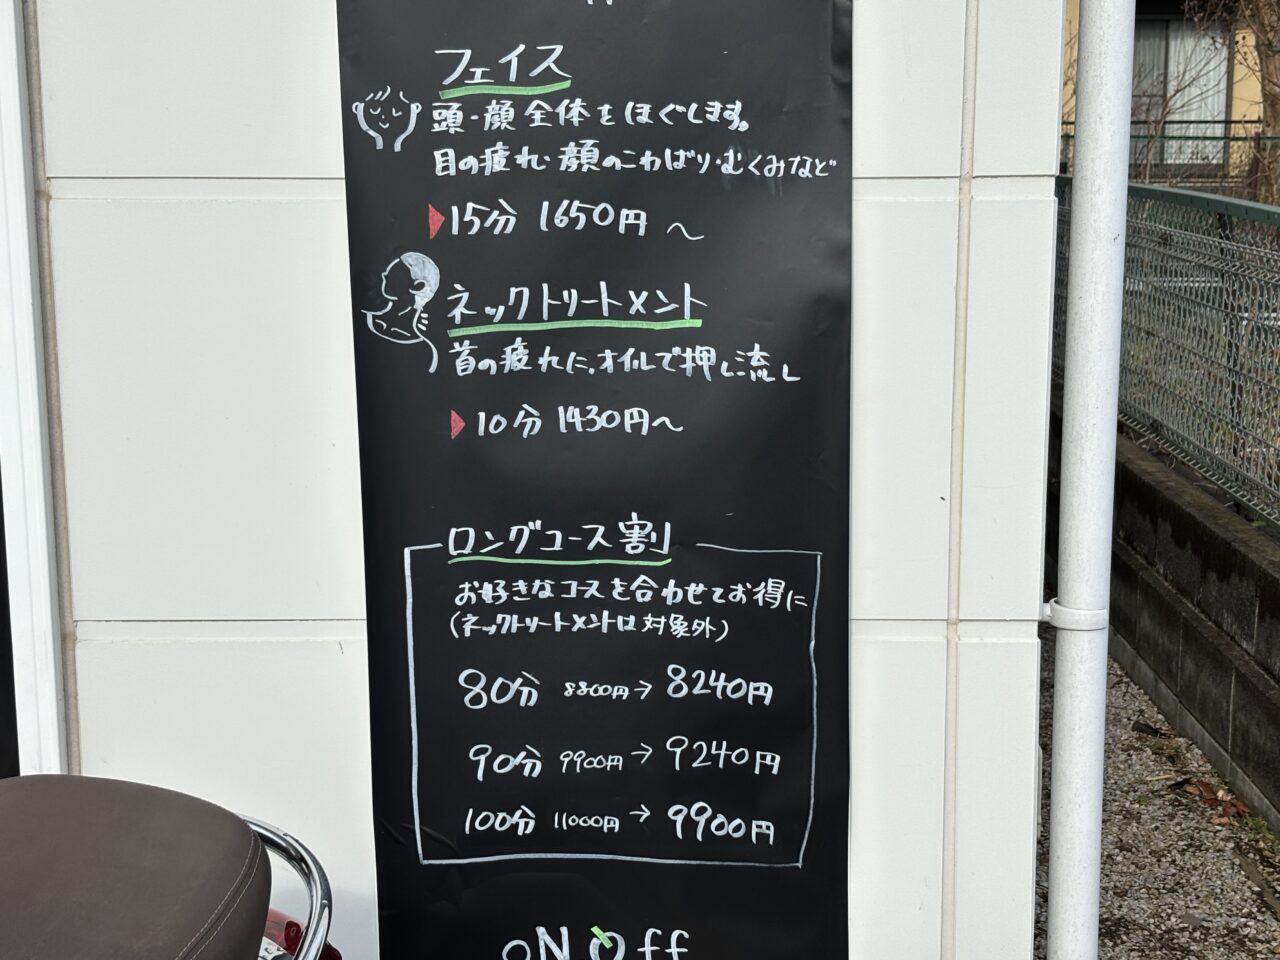 フェイス
頭・顔全体をほぐします。
目の疲れ・顔のこわばり・むくみなど
15分 1650円～
ネックトリートメント
首の疲れに。オイルで押し流し
10分 1430円～
ロングコース割
お好きなコースを合わせてお得に
(ネックトリートメントは対象外)
80分 8800円→8240円
90分 9900円→9240円
100分 11000円→9900円
oNOff